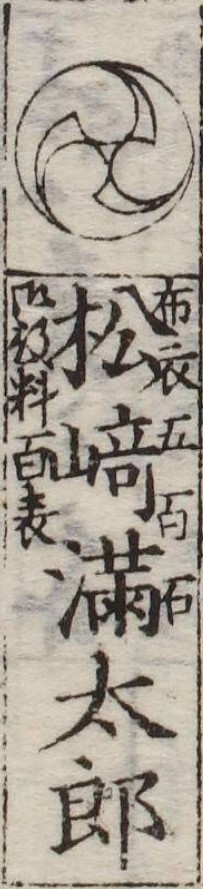 布衣 五百石
松﨑滿太郎
御役料百表